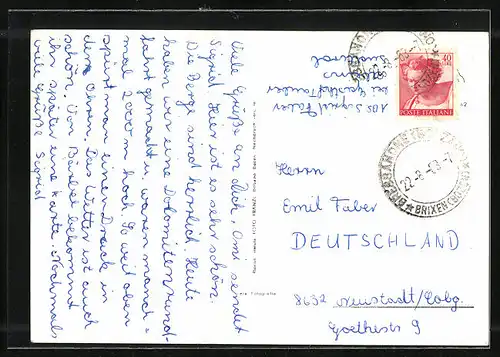 Viele Grüße an Dich, Omi sendet
Sigrid. Hier ist es sehr schön.
Die Berge sind herrlich. Heute
haben wir eine Dolomitenrund-
fahrt gemacht u. waren manch-
mal 2000m hoch. So weit oben
spürt man einen Druck in
den Ohren. Das Wetter ist auch
schön. Von Bärbel bekommst
ihr später eine Karte. Nochmals
viele Grüße Sigrid
Abs Sigrid Faber
bei
40
POSTE ITALIANE
BRESSANONE
22-8-63-7
BRIXEN
Herrn
Emil Faber
DEUTSCHLAND
8632 Neustadt/Cobg.
Goethestr 9